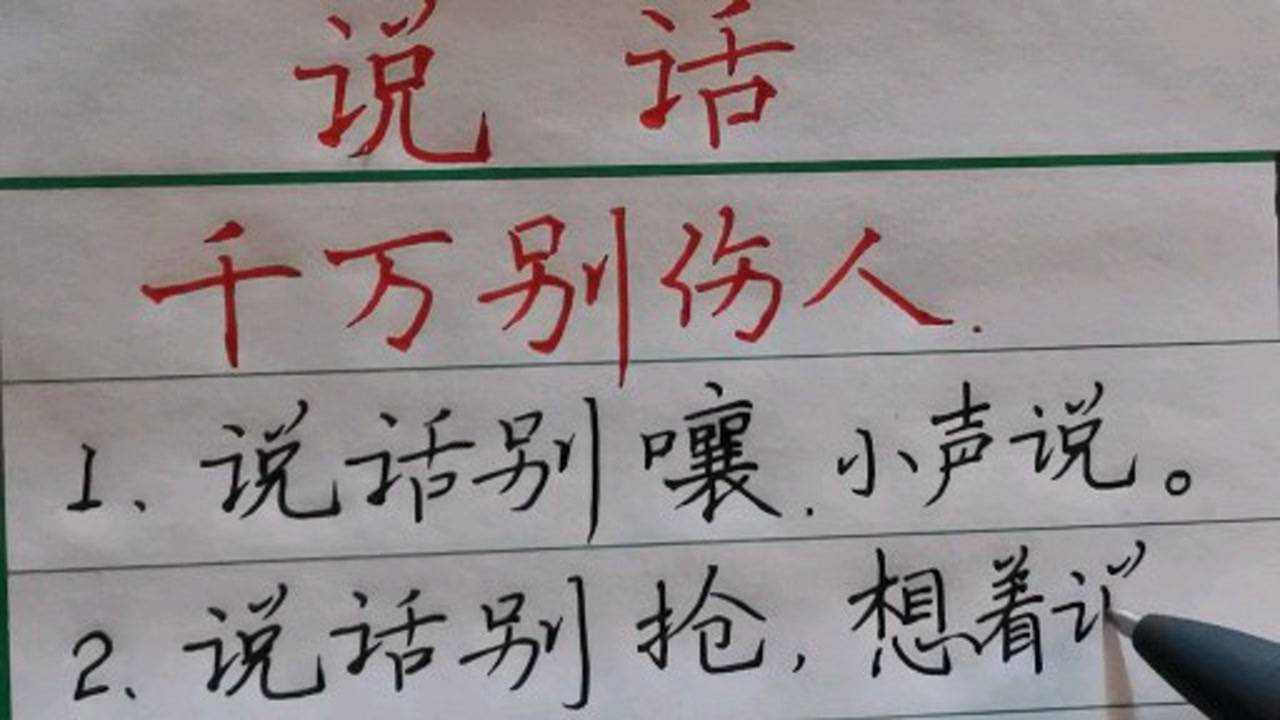 说话
千万别伤人.
1、说话别嚷.小声说。
2、说话别抢,想着